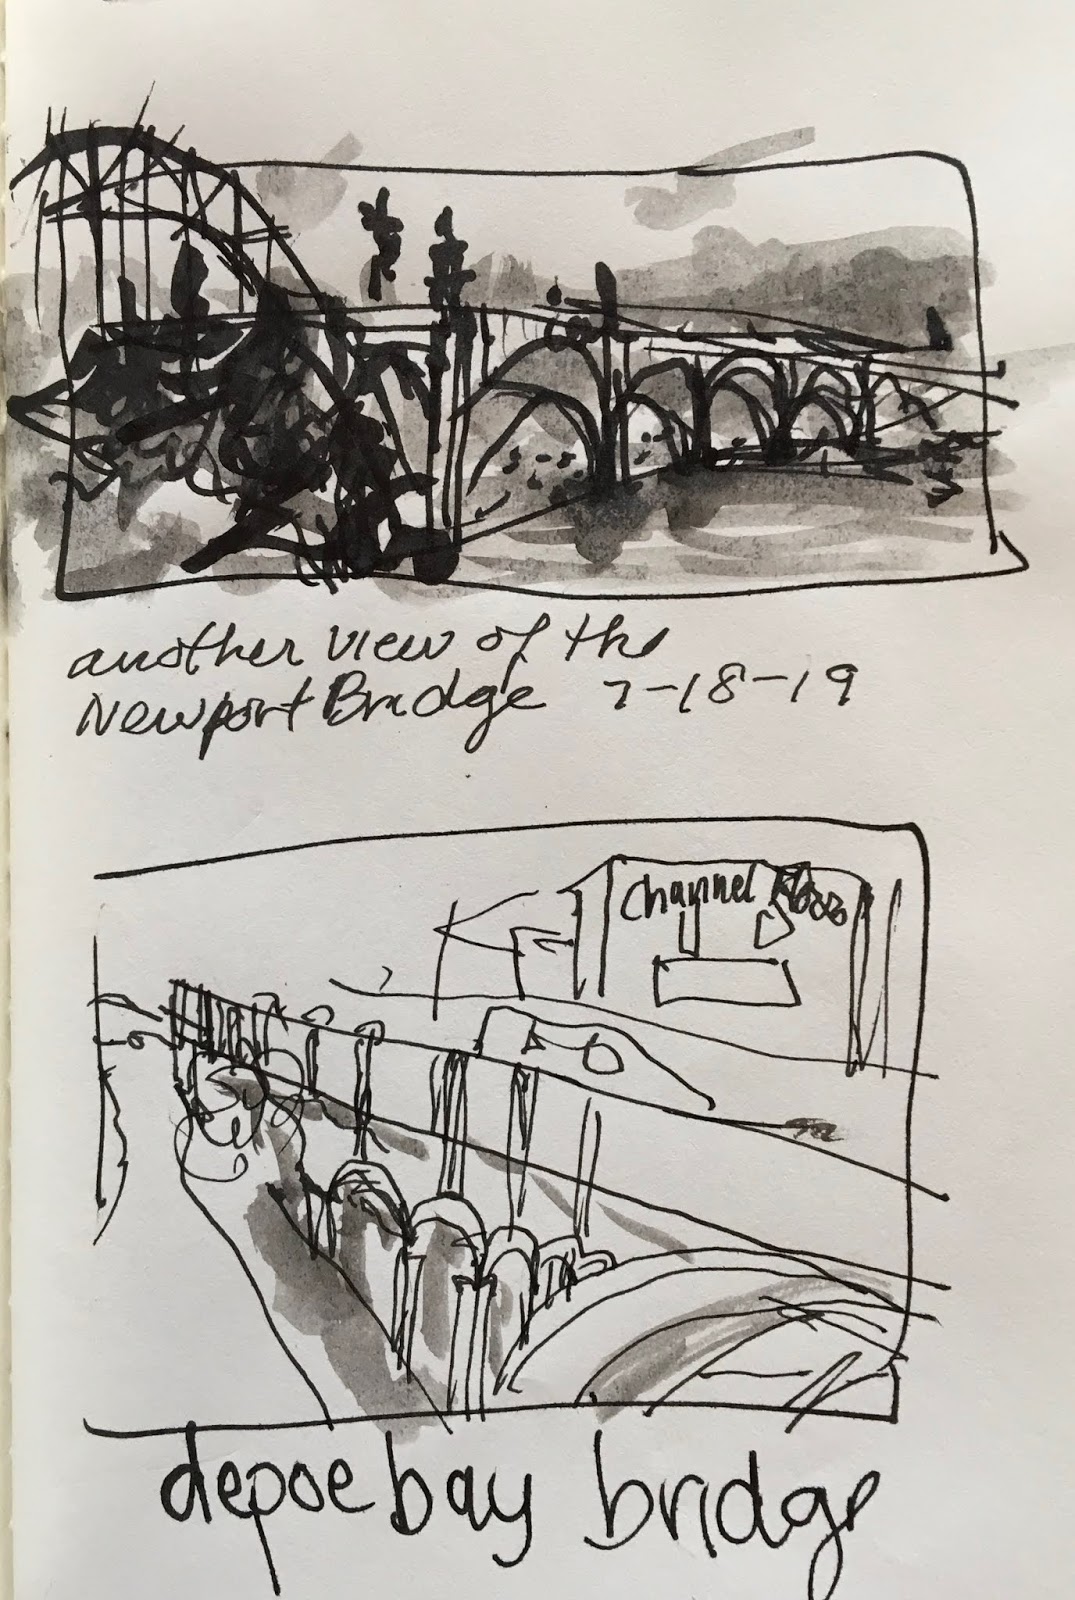 another view of the
Newport Bridge 7-18-19
Channel
depoe bay bridge